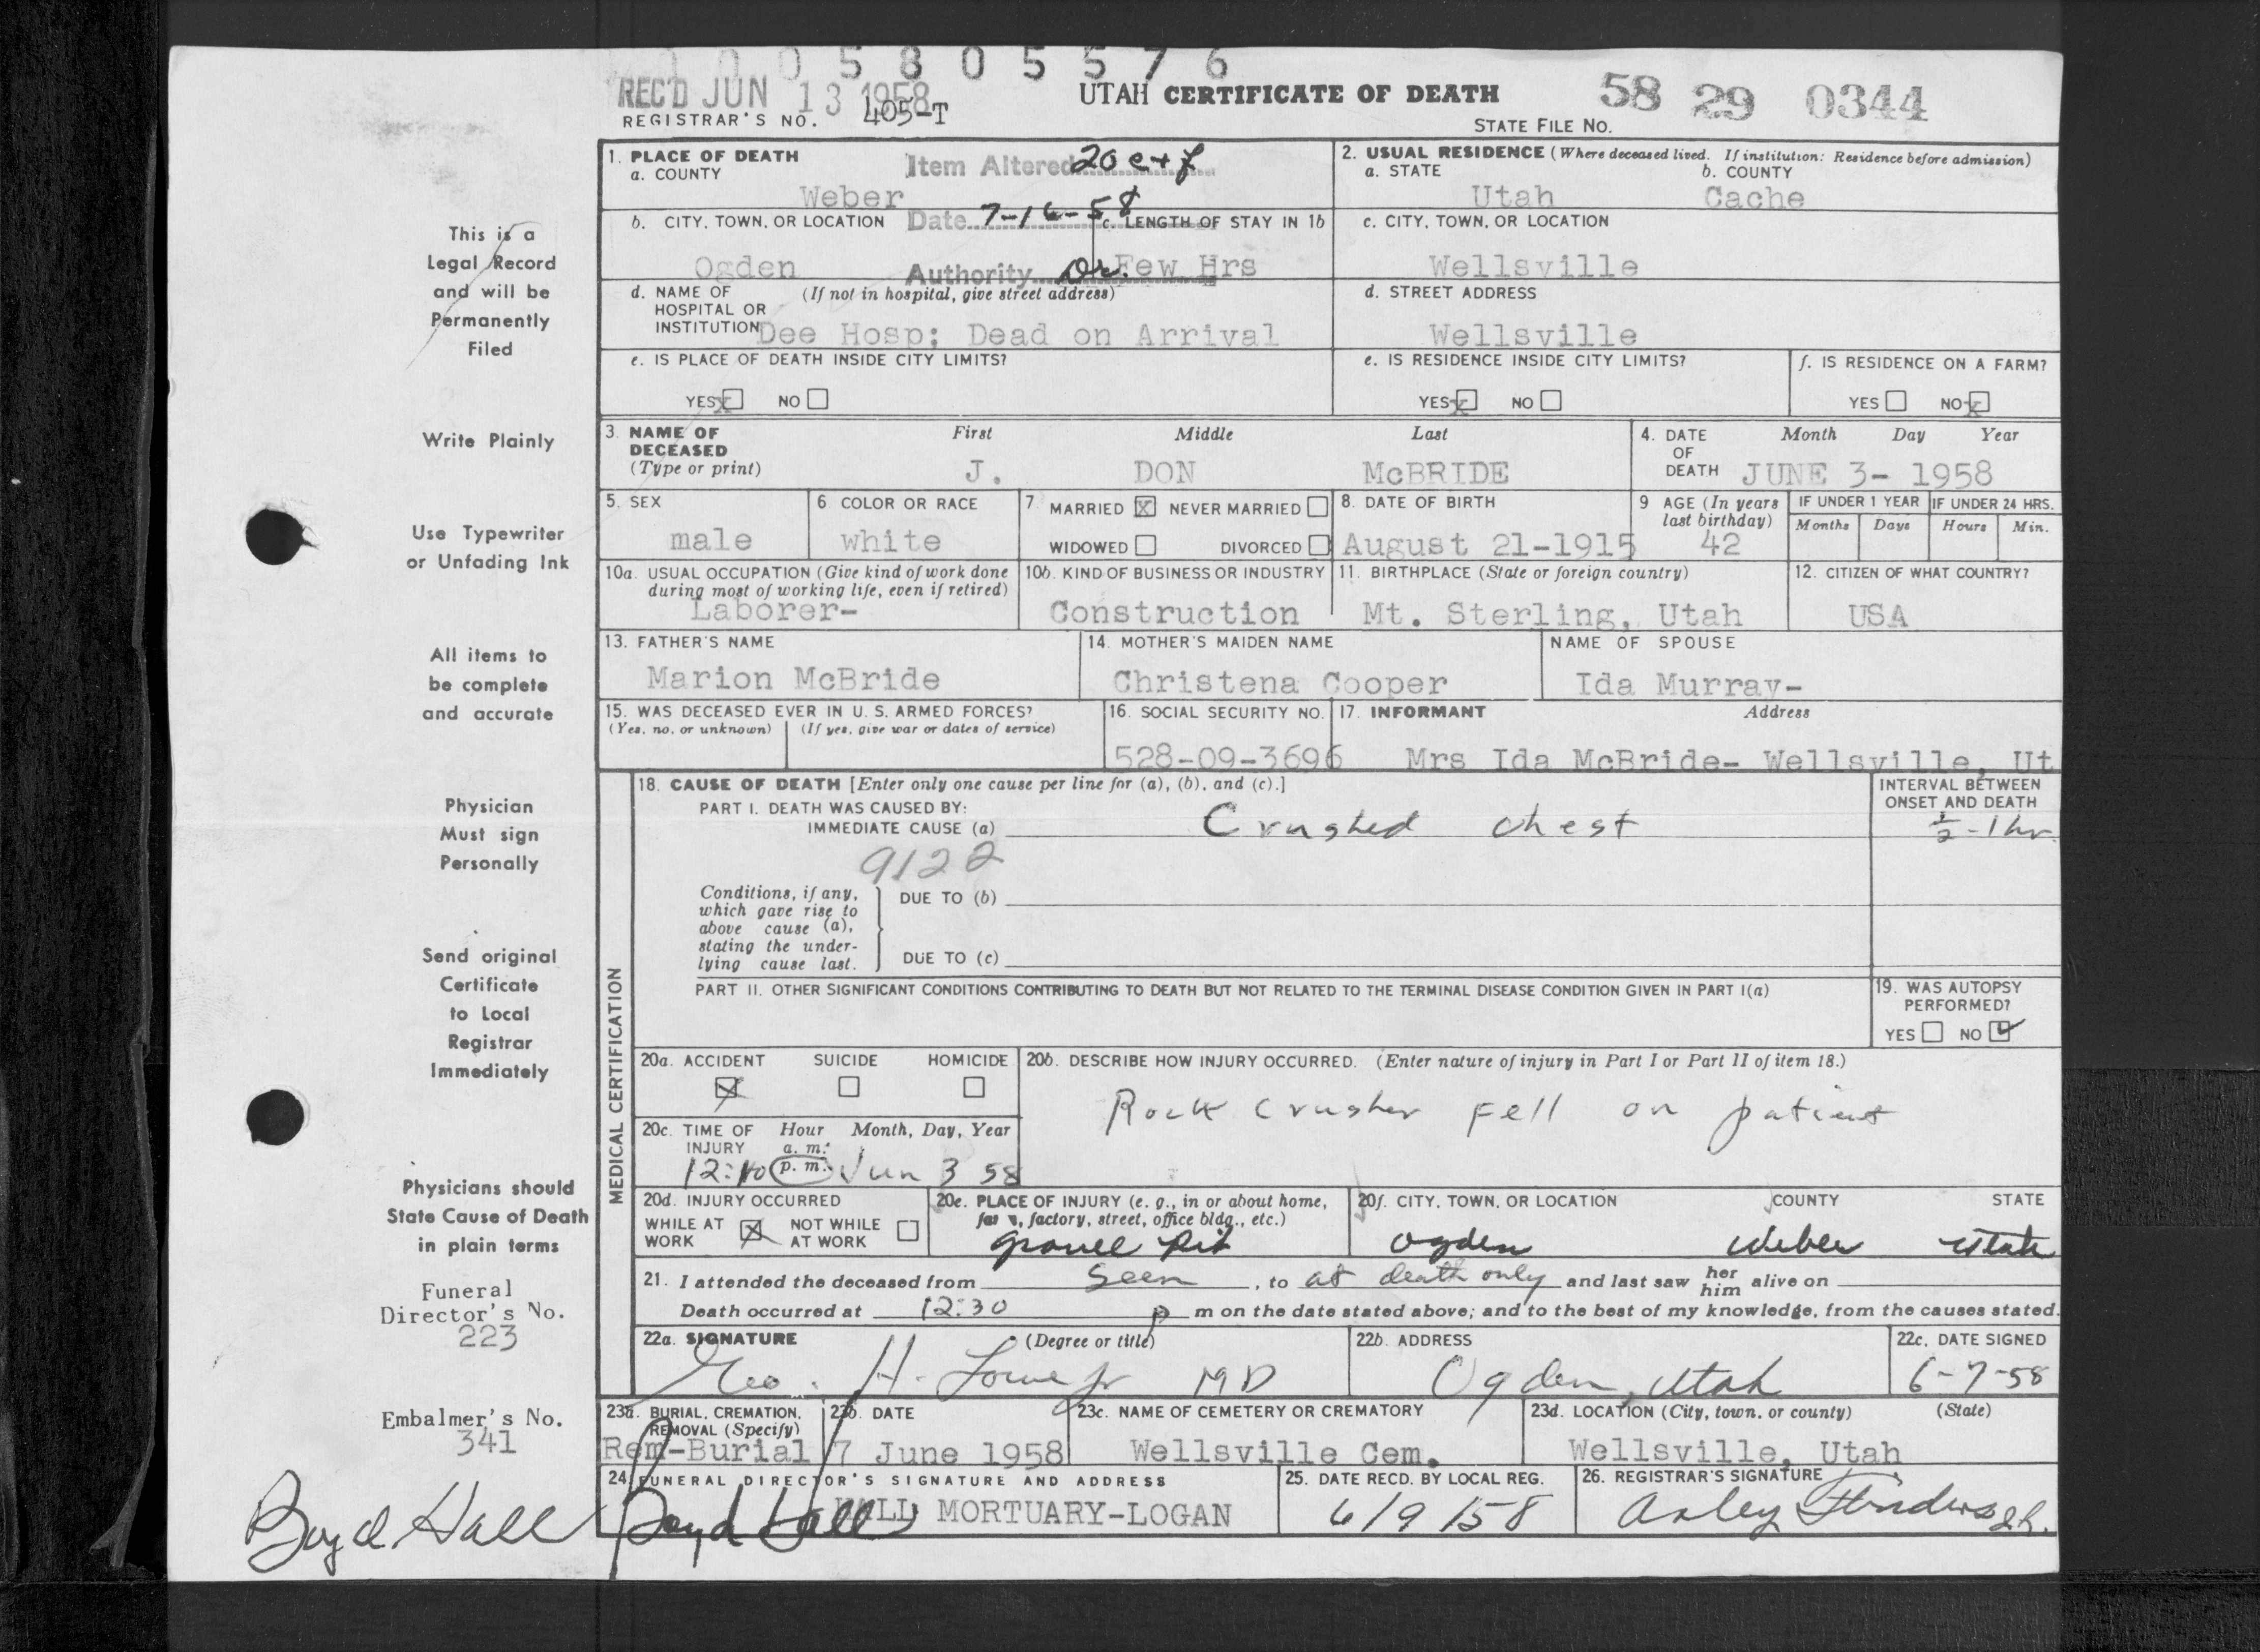 0 0 0 5 8 0 5 5 7 6
REC'D JUN 13 1958
UTAH CERTIFICATE OF DEATH
58 29 0344
REGISTRAR'S NO. 405-T
STATE FILE NO.
This is a
Legal Record
and will be
Permanently
Filed
Write Plainly
Use Typewriter
or Unfading Ink
All items to
be complete
and accurate
Physician
Must sign
Personally
Send original
Certificate
to Local
Registrar
Immediately
Physicians should
State Cause of Death
in plain terms
Funeral
Director's No.
223
Embalmer's No.
341
Boyd Hall
1. PLACE OF DEATH
a. COUNTY
Weber
Item Altered 20 e+f
Date 7-16-58
Authority Dr.
b. CITY, TOWN, OR LOCATION
Ogden
c. LENGTH OF STAY IN 1b
Few Hrs
d. NAME OF HOSPITAL OR INSTITUTION (If not in hospital, give street address)
Dee Hosp; Dead on Arrival
e. IS PLACE OF DEATH INSIDE CITY LIMITS?
YES x NO
2. USUAL RESIDENCE (Where deceased lived. If institution: Residence before admission)
a. STATE
Utah
b. COUNTY
Cache
c. CITY, TOWN, OR LOCATION
Wellsville
d. STREET ADDRESS
Wellsville
e. IS RESIDENCE INSIDE CITY LIMITS?
YES x NO
f. IS RESIDENCE ON A FARM?
YES NO x
3. NAME OF DECEASED (Type or print)
First Middle Last
J. DON McBRIDE
4. DATE OF DEATH
Month Day Year
JUNE 3- 1958
5. SEX
male
6 COLOR OR RACE
white
7. MARRIED X NEVER MARRIED
WIDOWED DIVORCED
8. DATE OF BIRTH
August 21-1915
9 AGE (In years last birthday)
42
IF UNDER 1 YEAR
Months Days
IF UNDER 24 HRS.
Hours Min.
10a. USUAL OCCUPATION (Give kind of work done during most of working life, even if retired)
Laborer-
10b. KIND OF BUSINESS OR INDUSTRY
Construction
11. BIRTHPLACE (State or foreign country)
Mt. Sterling, Utah
12. CITIZEN OF WHAT COUNTRY?
USA
13. FATHER'S NAME
Marion McBride
14. MOTHER'S MAIDEN NAME
Christena Cooper
NAME OF SPOUSE
Ida Murray-
15. WAS DECEASED EVER IN U. S. ARMED FORCES?
(Yes, no, or unknown) (If yes, give war or dates of service)
16. SOCIAL SECURITY NO.
528-09-3696
17. INFORMANT Address
Mrs Ida McBride- Wellsville, Ut
MEDICAL CERTIFICATION
18. CAUSE OF DEATH [Enter only one cause per line for (a), (b), and (c).]
PART I. DEATH WAS CAUSED BY:
IMMEDIATE CAUSE (a) Crushed chest
INTERVAL BETWEEN ONSET AND DEATH
½ - 1 hr
9122
Conditions, if any, which gave rise to above cause (a), stating the underlying cause last.
DUE TO (b)
DUE TO (c)
PART II. OTHER SIGNIFICANT CONDITIONS CONTRIBUTING TO DEATH BUT NOT RELATED TO THE TERMINAL DISEASE CONDITION GIVEN IN PART I(a)
19. WAS AUTOPSY PERFORMED?
YES NO ✓
20a. ACCIDENT SUICIDE HOMICIDE
X
20b. DESCRIBE HOW INJURY OCCURRED. (Enter nature of injury in Part I or Part II of item 18.)
Rock crusher fell on patient
20c. TIME OF INJURY Hour Month, Day, Year
a. m.
12:10 p. m. Jun 3 58
20d. INJURY OCCURRED
WHILE AT WORK X NOT WHILE AT WORK
20e. PLACE OF INJURY (e. g., in or about home, farm, factory, street, office bldg., etc.)
gravel pit
20f. CITY, TOWN, OR LOCATION COUNTY STATE
Ogden Weber Utah
21. I attended the deceased from Seen, to at death only and last saw her him alive on
Death occurred at 12:30 p m on the date stated above; and to the best of my knowledge, from the causes stated.
22a. SIGNATURE (Degree or title)
Geo. H. Lowe Jr MD
22b. ADDRESS
Ogden, Utah
22c. DATE SIGNED
6-7-58
23a. BURIAL, CREMATION, REMOVAL (Specify)
Rem-Burial
23b. DATE
7 June 1958
23c. NAME OF CEMETERY OR CREMATORY
Wellsville Cem.
23d. LOCATION (City, town, or county) (State)
Wellsville, Utah
24. FUNERAL DIRECTOR'S SIGNATURE AND ADDRESS
Boyd Hall HALL MORTUARY-LOGAN
25. DATE RECD. BY LOCAL REG.
6/9/58
26. REGISTRAR'S SIGNATURE